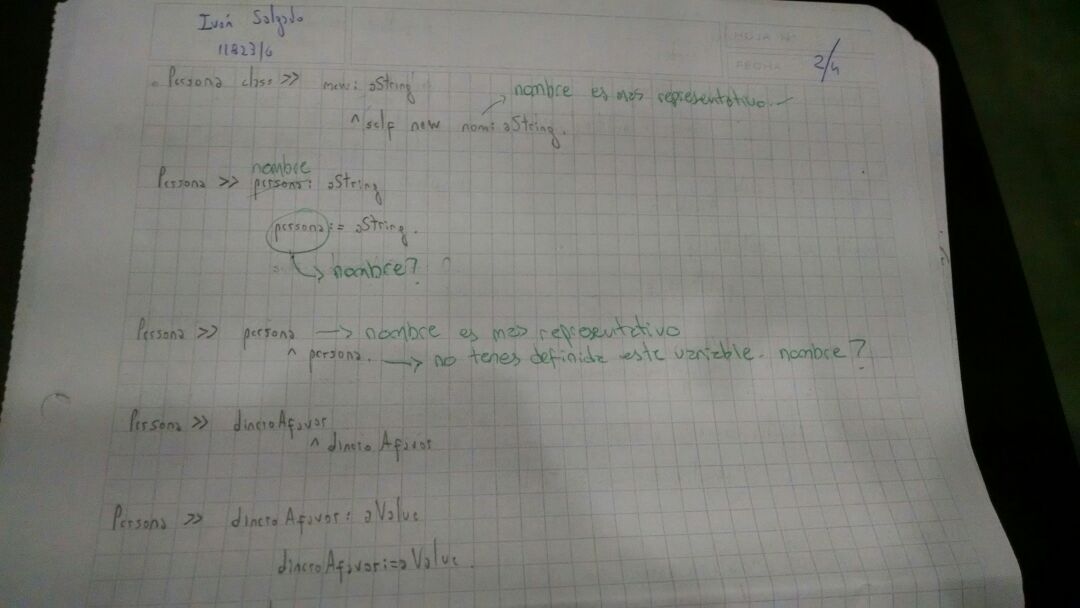 Iván Salgado
11823/6
HOJA Nº
FECHA
2/4
Persona class >> new: aString
nombre es mas representativo.
^ self new nom: aString.
nombre
Persona >> persona: aString
persona := aString.
nombre?
Persona >> persona → nombre es mas representativo
^ persona. → no tenes definida esta variable. nombre?
Persona >> dineroAfavor
^ dineroAfavor
Persona >> dineroAfavor: aValue
dineroAfavor:=aValue.